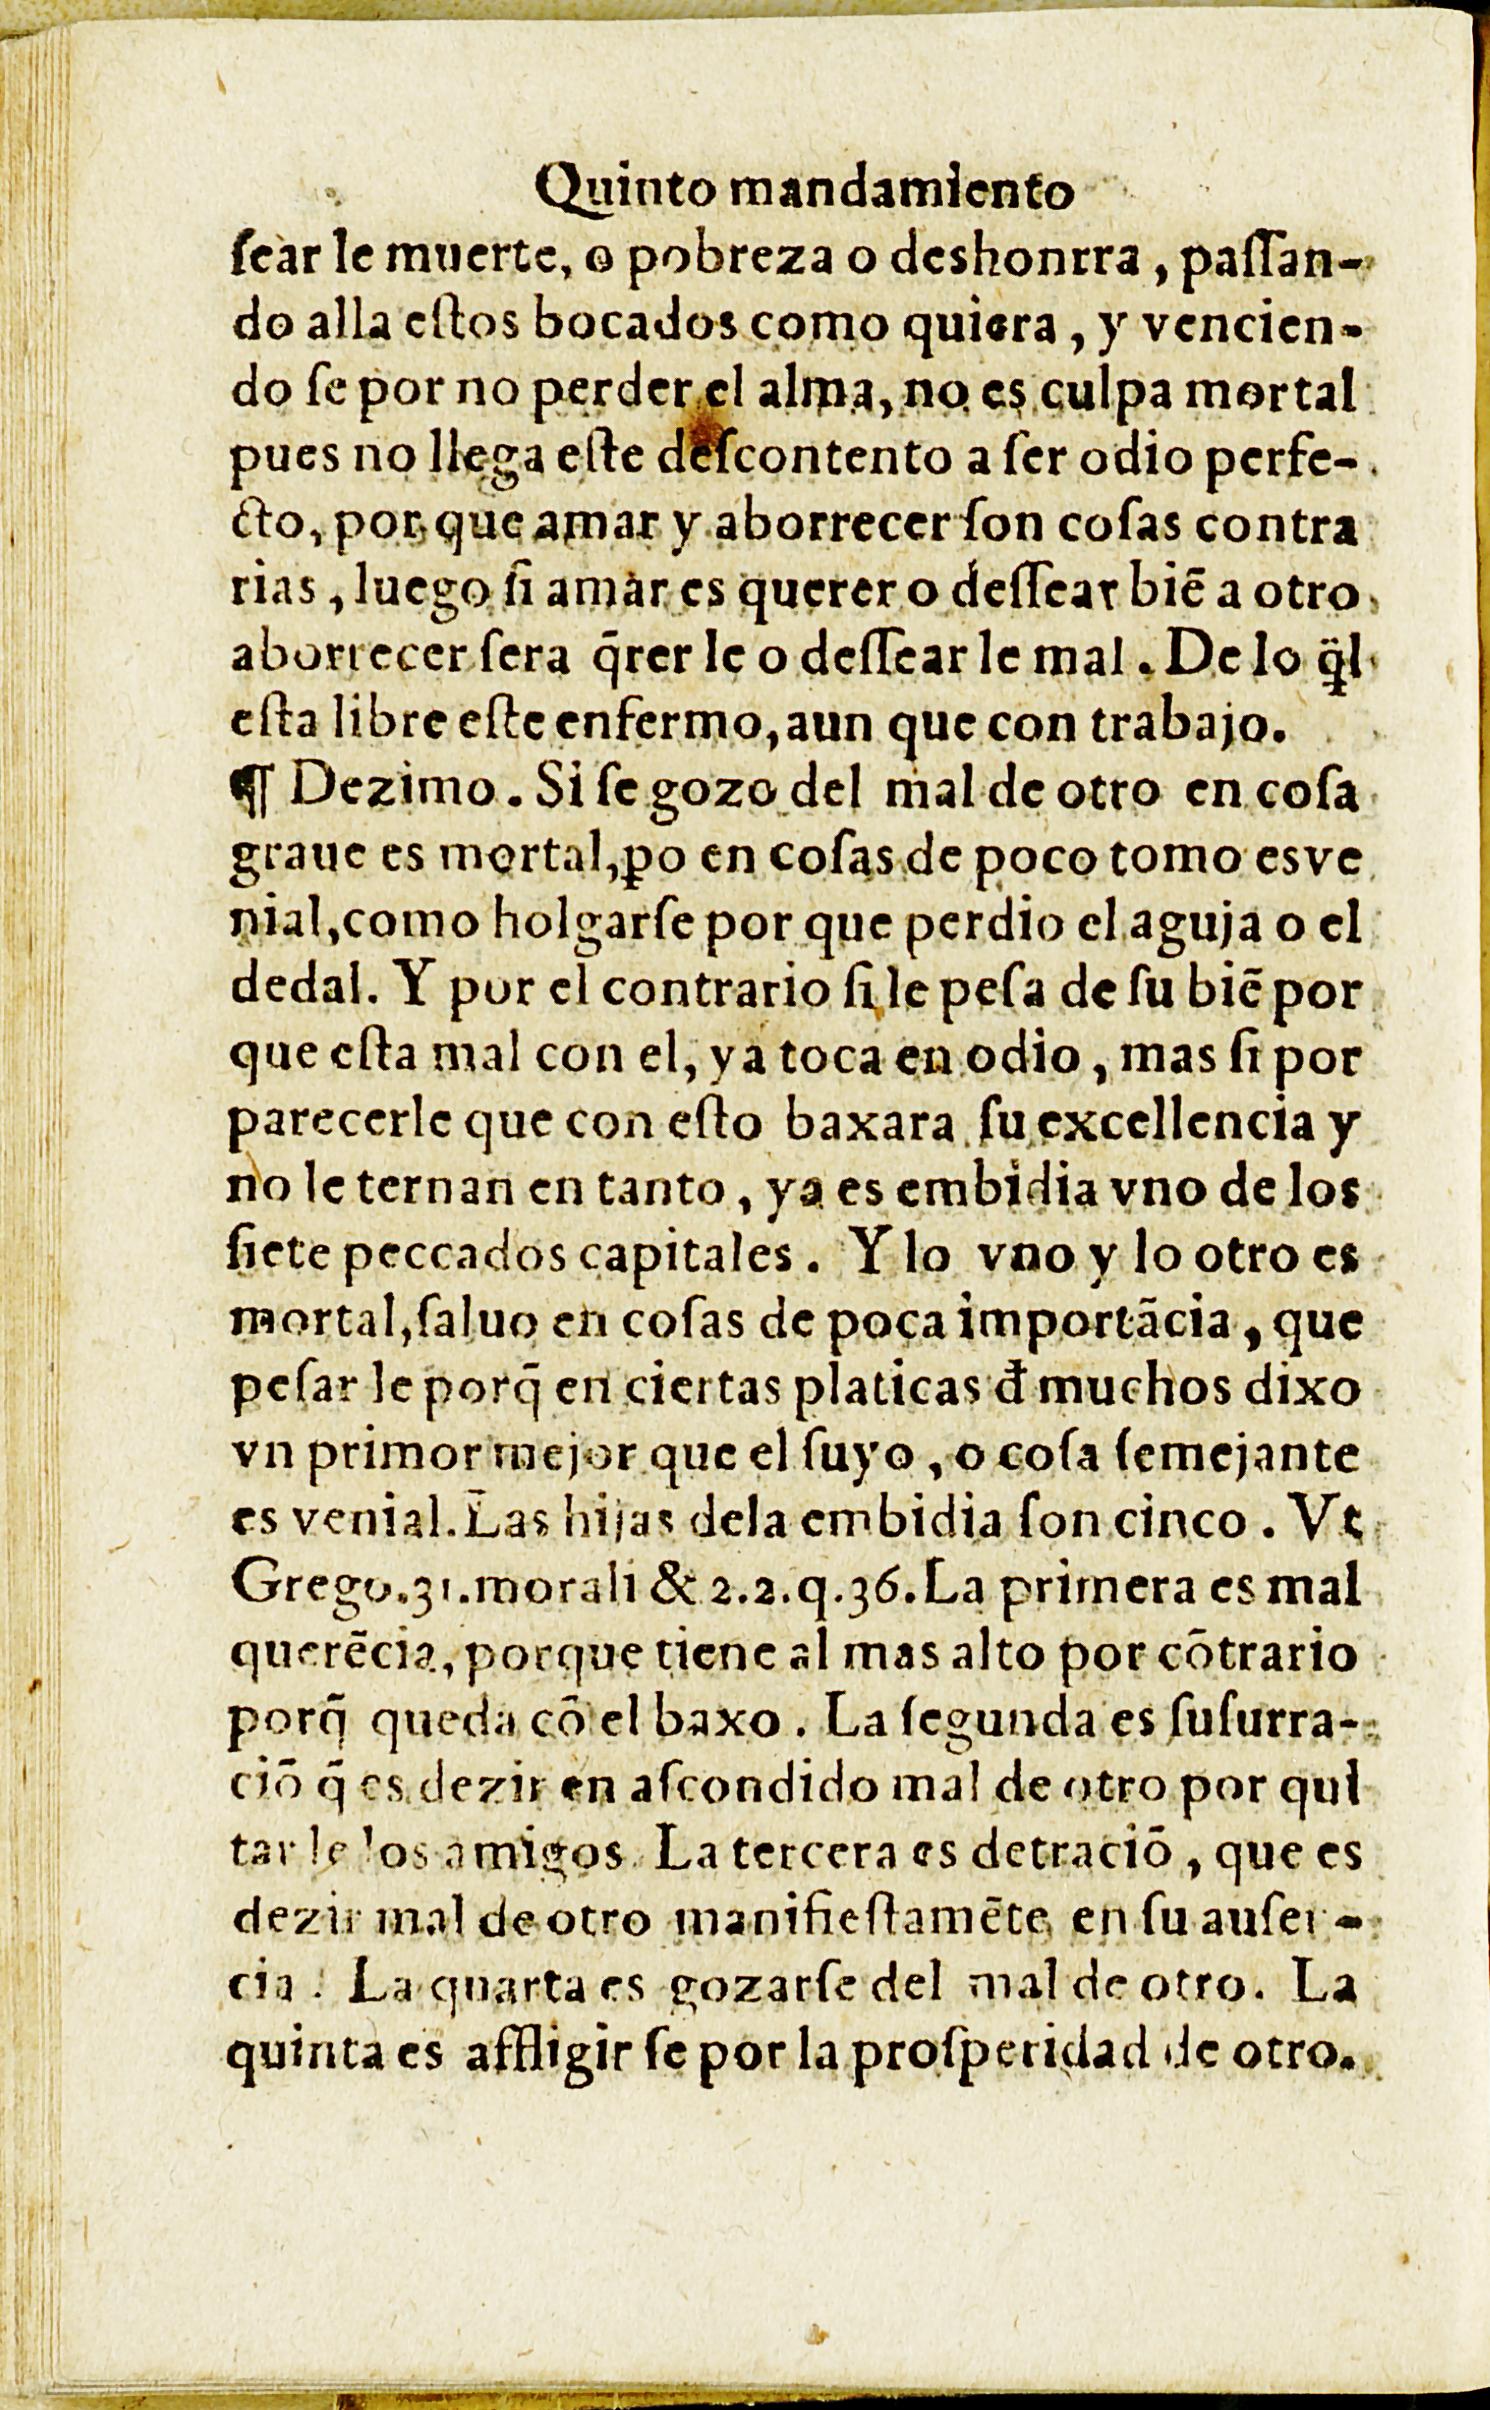 Quinto mandamiento
ſear le muerte, o pobreza o deshonrra, paſſan-
do alla eſtos bocados como quiera, y vencien-
do ſe por no perder el alma, no es culpa mortal
pues no llega eſte deſcontento a ſer odio perfe-
cto, por que amar y aborrecer ſon coſas contra
rias, luego ſi amar es querer o deſſear biē a otro
aborrecer ſera q̄rer le o deſſear le mal. De lo q̈l
eſta libre eſte enfermo, aun que con trabajo.
¶ Dezimo. Si ſe gozo del mal de otro en coſa
graue es mortal, ꝑo en coſas de poco tomo es ve
nial, como holgarſe por que perdio el aguja o el
dedal. Y por el contrario ſi le peſa de ſu biē por
que eſta mal con el, ya toca en odio, mas ſi por
parecerle que con eſto baxara ſu excellencia y
no le ternan en tanto, ya es embidia vno de los
ſiete peccados capitales. Y lo vno y lo otro es
mortal, ſaluo en coſas de poca importācia, que
peſar le porq̄ en ciertas platicas đ muchos dixo
vn primor mejor que el ſuyo, o coſa ſemejante
es venial. Las hijas dela embidia ſon cinco. Vt
Grego.31.morali & 2.2.q.36. La primera es mal
querēcia, porque tiene al mas alto por cōtrario
porq̄ queda cō el baxo. La ſegunda es ſuſurra-
ciō q̄ es dezir en aſcondido mal de otro por qui
tar le los amigos. La tercera es detraciō, que es
dezir mal de otro manifieſtamēte en ſu auſen-
cia. La quarta es gozarſe del mal de otro. La
quinta es affligir ſe por la proſperidad de otro.